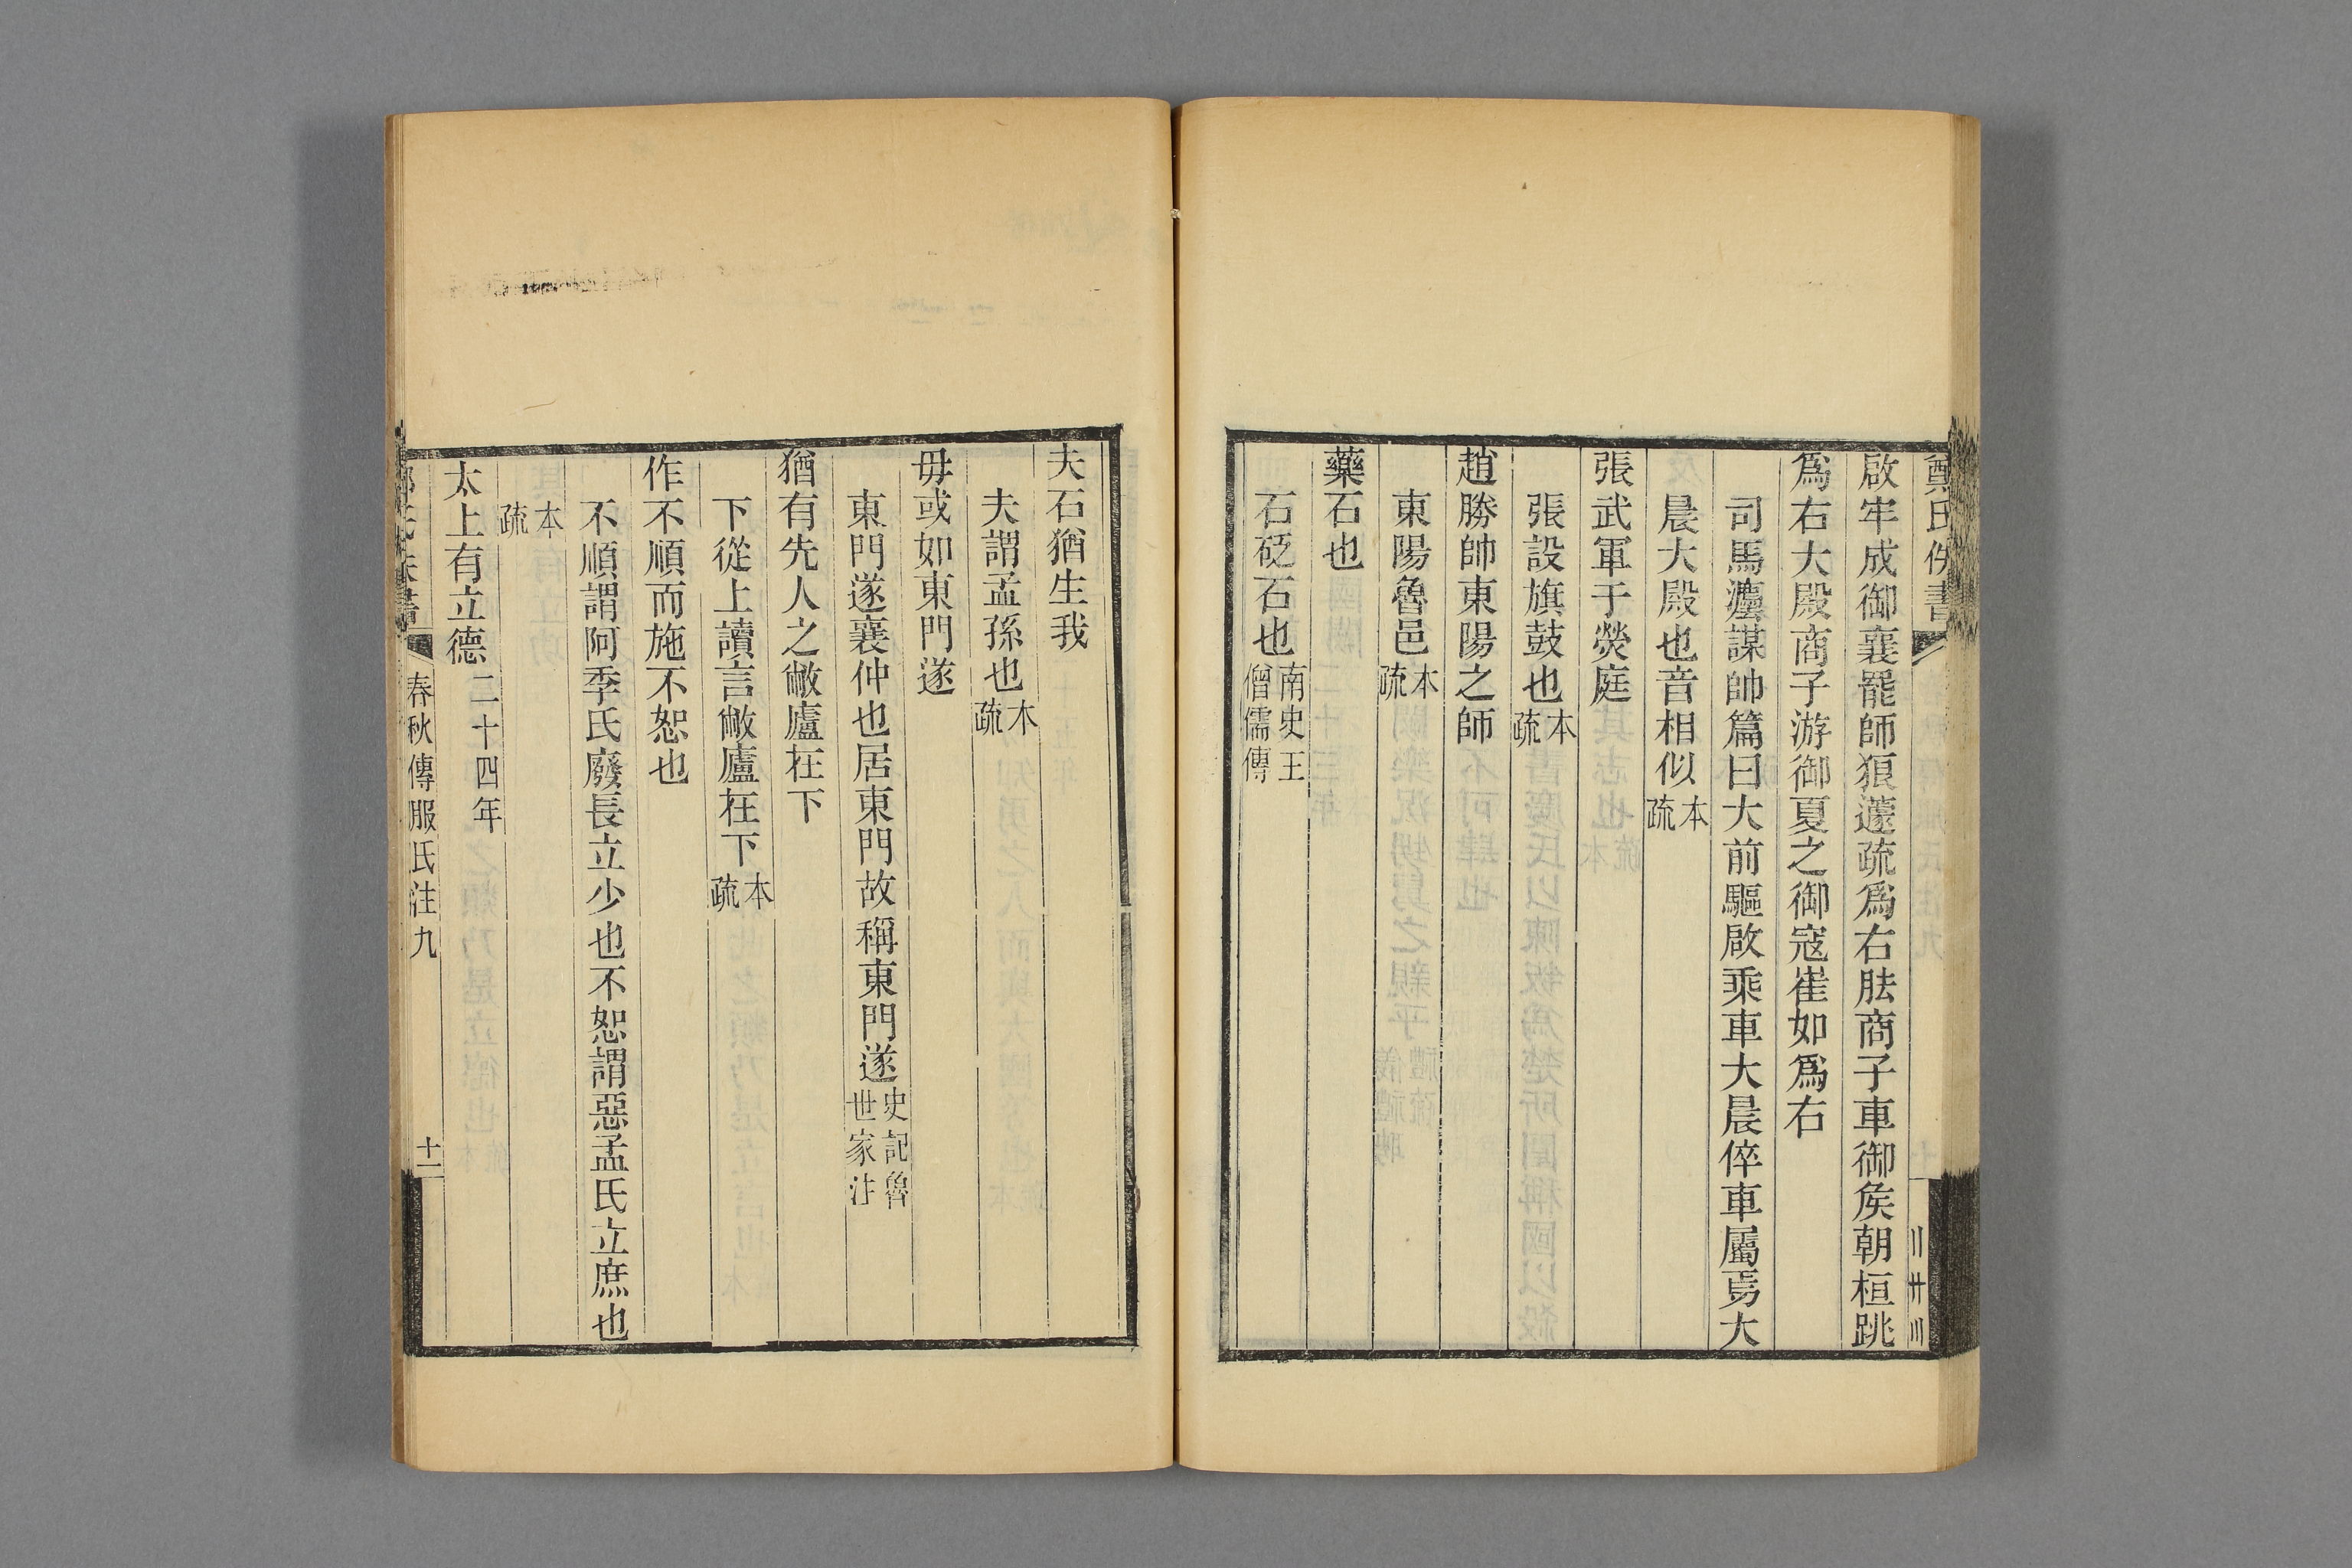 鄭氏佚書
啟牢成御襄罷師狼蘧疏爲右胠商子車御矦朝桓跳
爲右大殿商子游御夏之御寇崔如爲右
司馬灋謀帥篇曰大前驅啟乘車大晨倅車屬焉大
晨大殿也音相似本疏
張武軍于熒庭
張設旗鼓也本疏
趙勝帥東陽之師
東陽魯邑本疏
藥石也
石砭石也南史王僧儒傳
夫石猶生我
夫謂孟孫也本疏
毋或如東門遂
東門遂襄仲也居東門故稱東門遂史記魯世家注
猶有先人之敝廬在下
下從上讀言敝廬在下本疏
作不順而施不恕也
不順謂阿季氏廢長立少也不恕謂惡孟氏立庶也
本疏
太上有立德二十四年
春秋傳服氏注九 十一